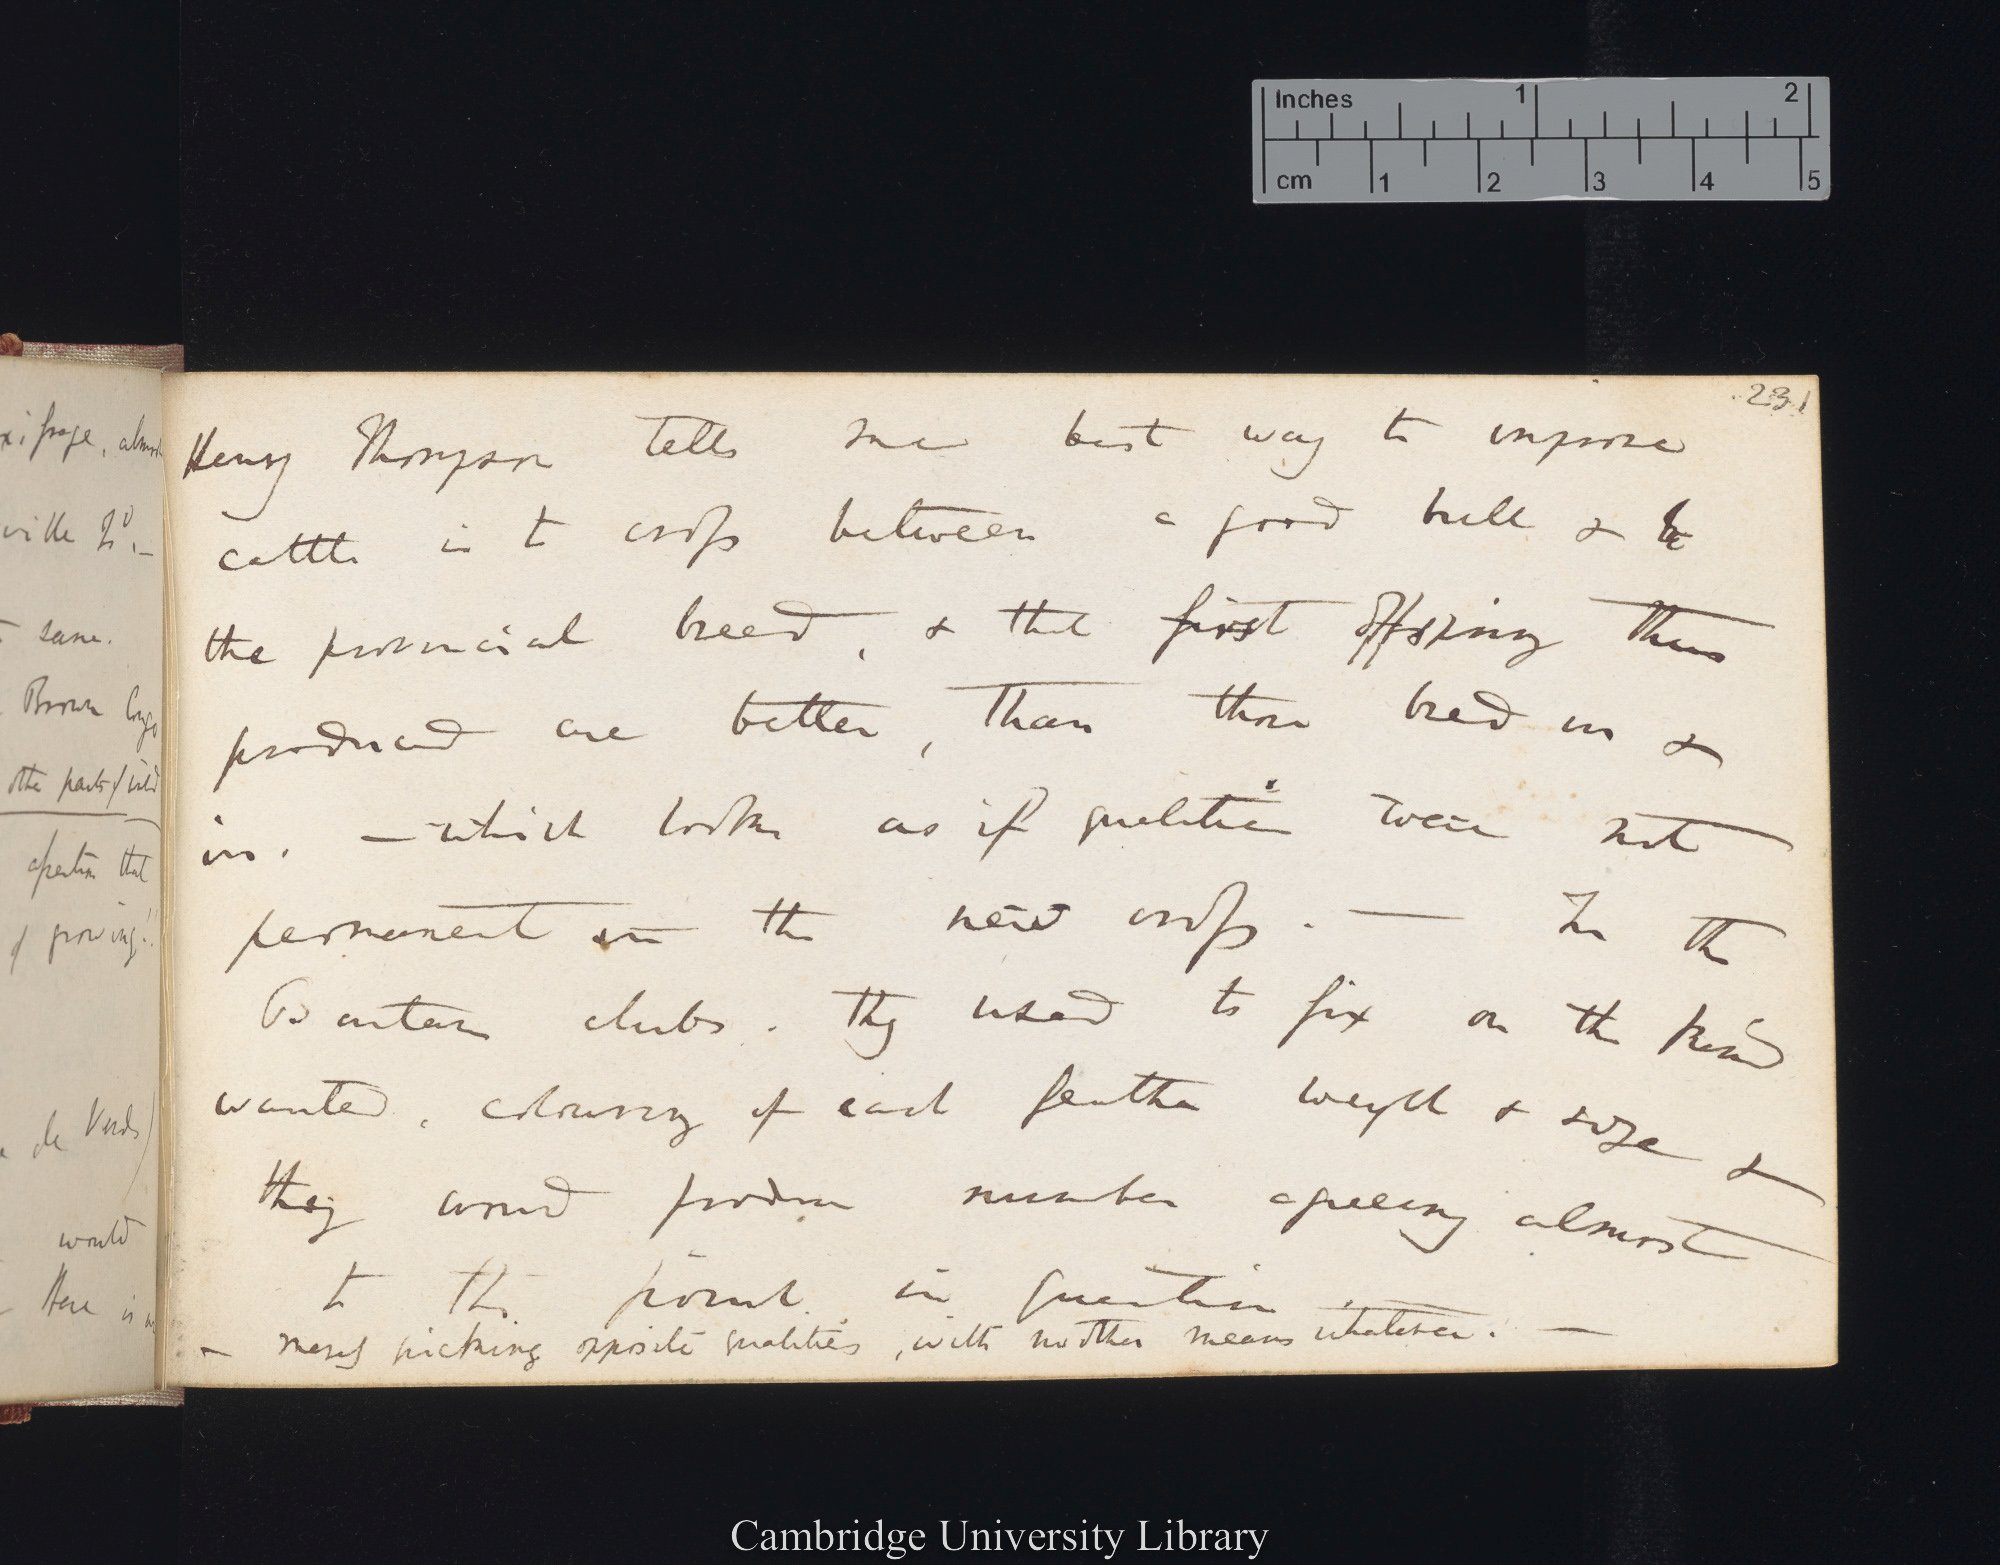 Inches 1 2
cm 1 2 3 4 5
231
Henry Thompson tells me best way to improve
cattle is to cross between a good bull &
the provincial breed, & that first offspring thus
produced are better, than those bred in &
in. — which looks as if qualities were not
permanent in the new cross. — In the
Bantam clubs. they used to fix on the kind
wanted, colouring of each feather weight & size &
they would produce number agreeing almost
to the point in question.
— merely picking opposite qualities, with no other means whatever. —
xifrage, almost
ville
same.
Brown Congo
other parts of
that
of growing!!
de Verds)
would
Here is
Cambridge University Library